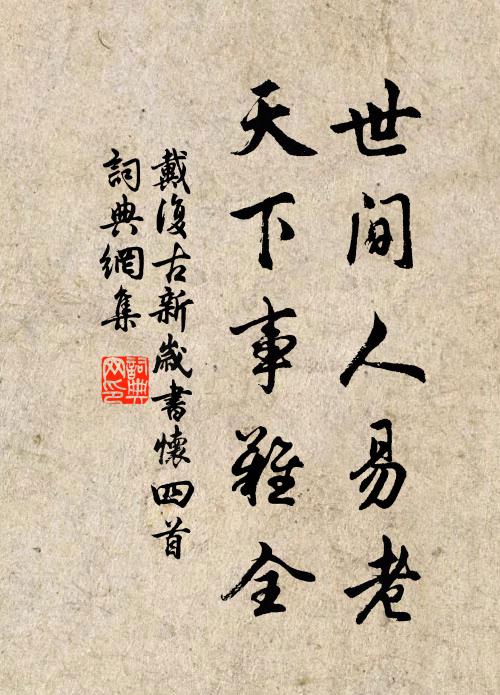 世间人易老
天下事難全
戴復古新歲書懷四首
詞典網集
詞典
网印